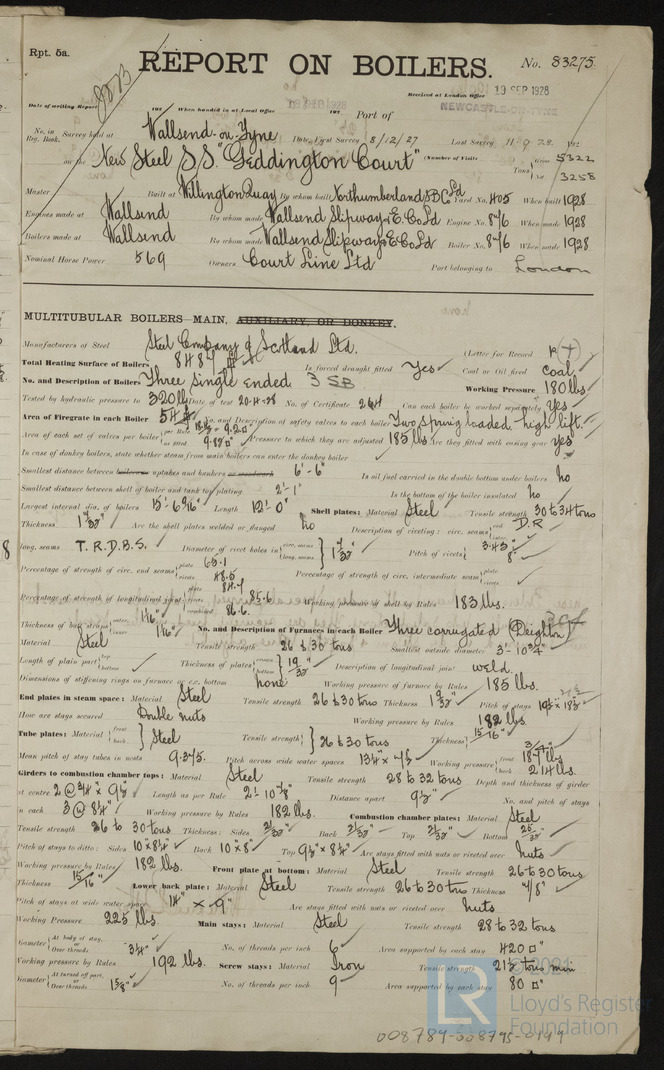 Rpt. 5a.
REPORT ON BOILERS.
No. 83275
Received at London Office 19 SEP 1928
NEWCASTLE-ON-TYNE
Date of writing Report 192 When handed in at Local Office 192 Port of
No. in Reg. Book. Survey held at Wallsend-on-Tyne Date, First Survey 8/12/27 Last Survey 11 9 28 192
on the New Steel S.S. "Geddington Court" (Number of Visits Tons Gross 5322 Net 3258
Master Built at Willington Quay By whom built Northumberland S.B. Co Ld Yard No. 405 When built 1928
Engines made at Wallsend By whom made Wallsend Slipway & E. Co Ld Engine No. 876 When made 1928
Boilers made at Wallsend By whom made Wallsend Slipway & E Co Ld Boiler No. 876 When made 1928
Nominal Horse Power 569 Owners Court Line Ltd Port belonging to London
MULTITUBULAR BOILERS MAIN, AUXILIARY, OR DONKEY.
Manufacturers of Steel Steel Company of Scotland Ltd. (Letter for Record
Total Heating Surface of Boilers 8487 Is forced draught fitted Yes Coal or Oil fired coal
No. and Description of Boilers Three Single ended 3 SB Working Pressure 180 lbs
Tested by hydraulic pressure to 320 lbs Date of test 20.4.28 No. of Certificate 264 Can each boiler be worked separately Yes
Area of Firegrate in each Boiler 54 No. and Description of safety valves to each boiler Two Spring loaded high lift.
Area of each set of valves per boiler Pressure to which they are adjusted 185 lbs Are they fitted with easing gear yes
In case of donkey boilers, state whether steam from main boilers can enter the donkey boiler
Smallest distance between boilers or uptakes and bunkers or woodwork 6'-6" Is oil fuel carried in the double bottom under boilers no
Smallest distance between shell of boiler and tank top plating 2'-1" Is the bottom of the boiler insulated no
Largest internal dia. of boilers Length 12'-0" Shell plates: Material Steel Tensile strength 30 to 34 tons
Thickness Are the shell plates welded or flanged no Description of riveting: circ. seams end D.R
long. seams T.R.D.B.S. Diameter of rivet holes in circ. seams long. seams Pitch of rivets 3.45" 8"
Percentage of strength of circ. end seams plate 65.1 rivets 48.5 Percentage of strength of circ. intermediate seam plate rivets
Percentage of strength of longitudinal joint plate 84.4 rivets 85.6 combined 86.6 Working pressure of shell by Rules 183 lbs.
Thickness of butt straps outer inner No. and Description of Furnaces in each Boiler Three corrugated (Deighton)
Material Steel Tensile strength 26 to 30 tons Smallest outside diameter 3'-10¾"
Length of plain part top bottom Thickness of plates crown bottom 19/32" Description of longitudinal joint weld.
Dimensions of stiffening rings on furnace or c.c. bottom none Working pressure of furnace by Rules 185 lbs.
End plates in steam space: Material Steel Tensile strength 26 to 30 tons Thickness Pitch of stays
How are stays secured Double nuts Working pressure by Rules 182 lbs.
Tube plates: Material front back Steel Tensile strength 26 to 30 tons Thickness 15/16"
Mean pitch of stay tubes in nests 9.375. Pitch across wide water spaces Working pressure front back 214 lbs.
Girders to combustion chamber tops: Material Steel Tensile strength 28 to 32 tons Depth and thickness of girder
at centre 2 @ ¾" × 9½" Length as per Rule Distance apart 9½" No. and pitch of stays
in each 3 @ 8¼" Working pressure by Rules 182 lbs. Combustion chamber plates: Material Steel
Tensile strength 26 to 30 tons Thickness: Sides 21/32" Back 21/32" Top 21/32" Bottom
Pitch of stays to ditto: Sides 10" × 8¼" Back 10" × 8" Top 9½" × 8¼" Are stays fitted with nuts or riveted over nuts
Working pressure by Rules 182 lbs. Front plate at bottom: Material Steel Tensile strength 26 to 30 tons
Thickness 15/16" Lower back plate: Material Steel Tensile strength 26 to 30 tons Thickness 7/8"
Pitch of stays at wide water space 14" × 9" Are stays fitted with nuts or riveted over nuts
Working Pressure 225 lbs. Main stays: Material Steel Tensile strength 28 to 32 tons
Diameter At body of stay, or Over threads 3¼" No. of threads per inch 6 Area supported by each stay 420 □"
Working pressure by Rules 192 lbs. Screw stays: Material Iron Tensile strength 21½ tons min
Diameter At turned off part, or Over threads 1⅝" No. of threads per inch 9 Area supported by each stay 80 □"
© 2021
LR
Lloyd's Register
Foundation
008789-008795-0149